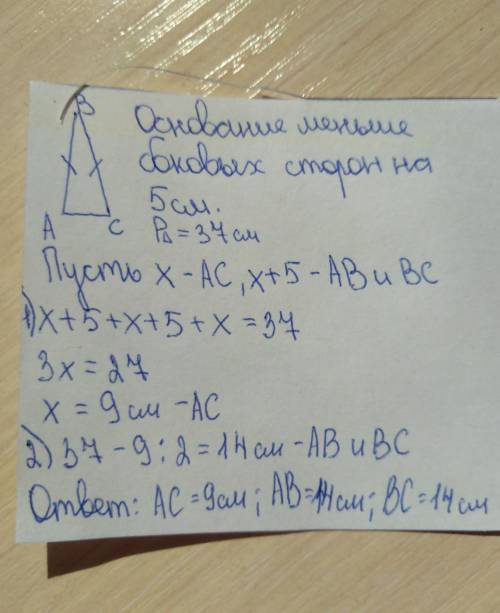 B
Основание меньше
боковых сторон на
5 см.
A C P△ = 37 см
Пусть x - AC, x+5 - AB и BC
1) x+5+x+5+x=37
3x = 27
x = 9 см - AC
2) 37 - 9 : 2 = 14 см - AB и BC
Ответ: AC = 9 см; AB = 14 см; BC = 14 см